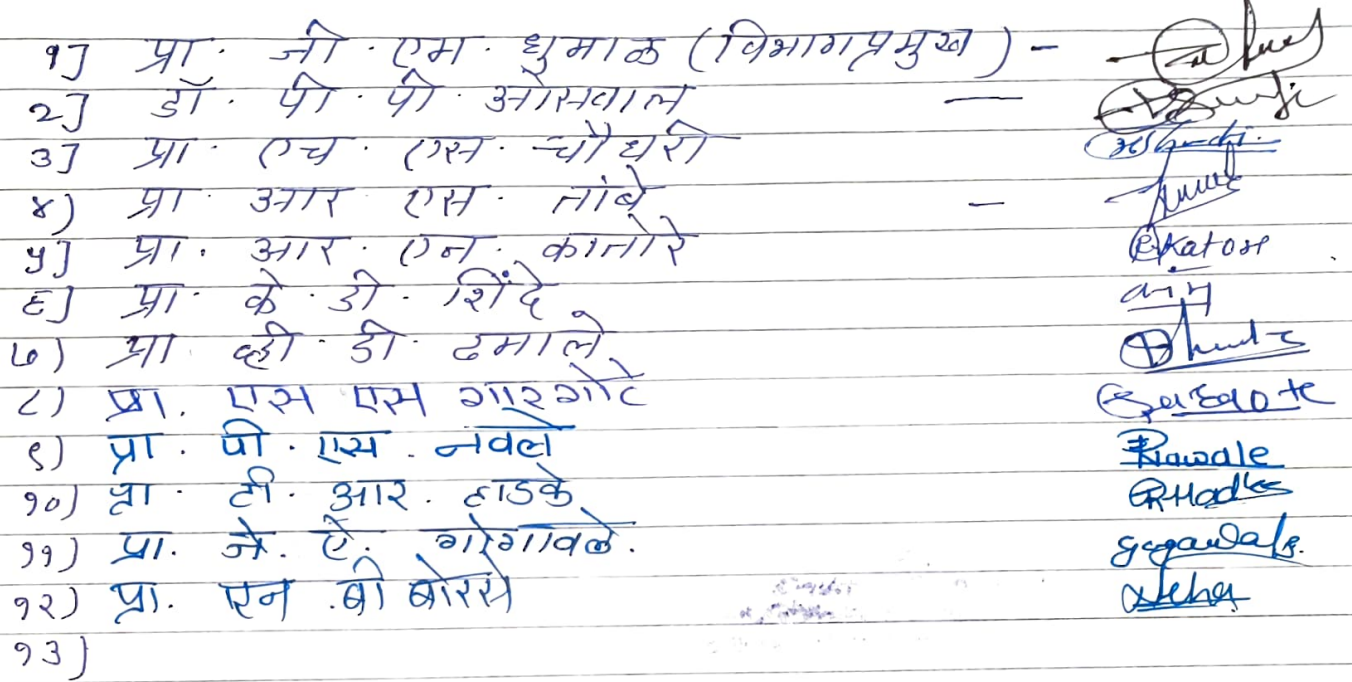 १] प्रा. जी. एम. धुमाळ (विभागप्रमुख) -
२] डॉ. पी. पी. ओसवाल —
३] प्रा. एच. एस. चौधरी
४) प्रा. आर एस. तांबे -
५] प्रा. आर. एन. कातोरे Rkatore
६] प्रा. के. डी. शिंदे
७) प्रा व्ही. डी. ढमाले
८) प्रा. एस एस गारगोटे Gargote
९) प्रा. पी. एस. नवले Pnawale
१०) प्रा. टी. आर. हाडके RHadke
११) प्रा. जे. ऐ. गोगावले. gogawale.
१२) प्रा. एन .बी बोरसे
१३)